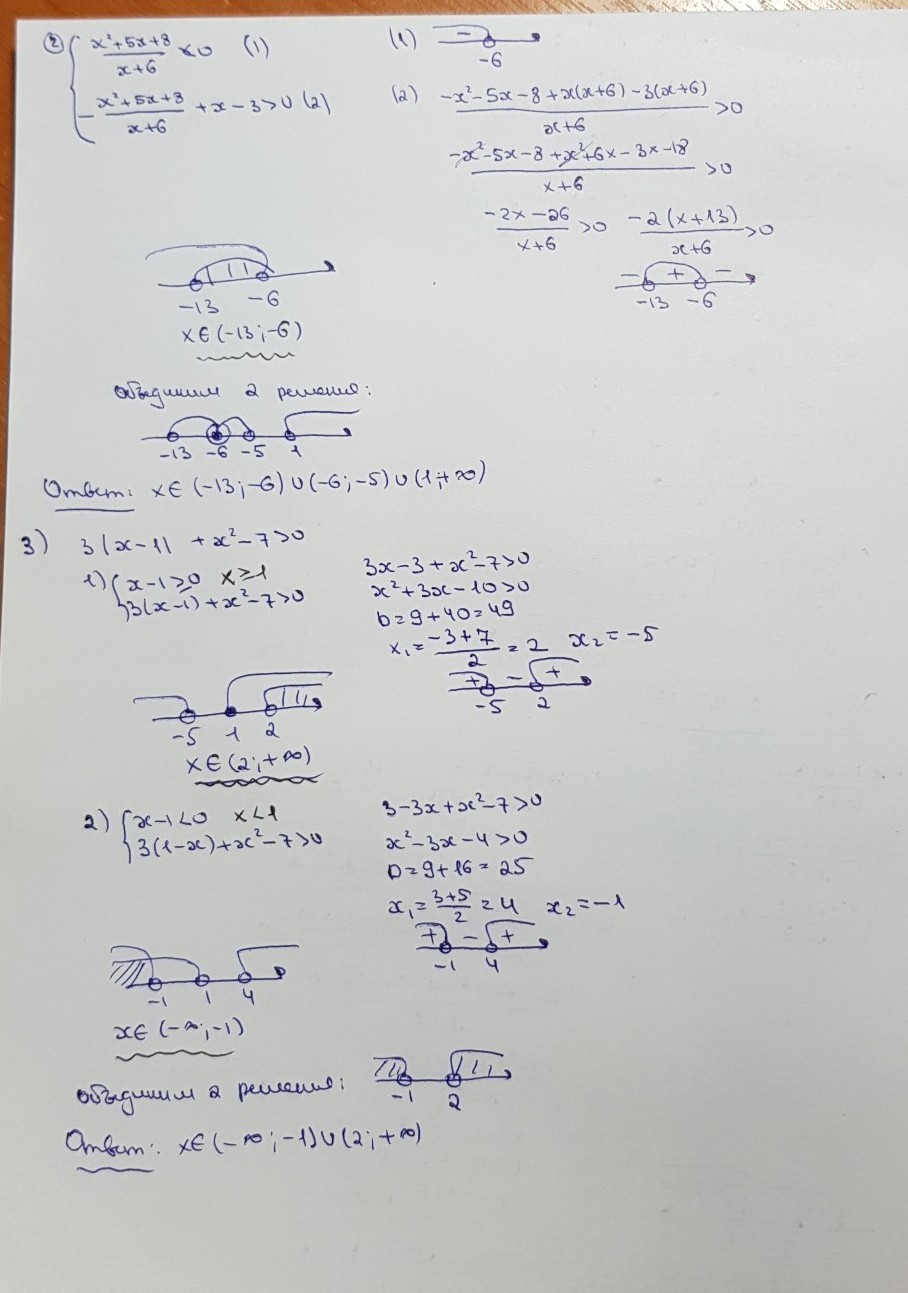 ② { (x²+5x+8)/(x+6) < 0 (1)
-(x²+5x+8)/(x+6) + x - 3 > 0 (2)
(1) − -6
(2) (-x²-5x-8+x(x+6)-3(x+6))/(x+6) > 0
(-x²-5x-8+x²+6x-3x-18)/(x+6) > 0
(-2x-26)/(x+6) > 0 (-2(x+13))/(x+6) > 0
− + −
-13 -6
-13 -6
x∈(-13;-6)
Объединим 2 решения:
-13 -6 -5 1
Ответ: x∈(-13;-6)∪(-6;-5)∪(1;+∞)
3) 3|x-1| + x²-7>0
1) { x-1≥0 x≥1
3(x-1)+x²-7>0
3x-3+x²-7>0
x²+3x-10>0
D=9+40=49
x₁=(-3+7)/2=2 x₂=-5
+ − +
-5 2
-5 1 2
x∈(2;+∞)
2) { x-1<0 x<1
3(1-x)+x²-7>0
3-3x+x²-7>0
x²-3x-4>0
D=9+16=25
x₁=(3+5)/2=4 x₂=-1
+ − +
-1 4
-1 1 4
x∈(-∞;-1)
Объединим 2 решения:
-1 2
Ответ: x∈(-∞;-1)∪(2;+∞)